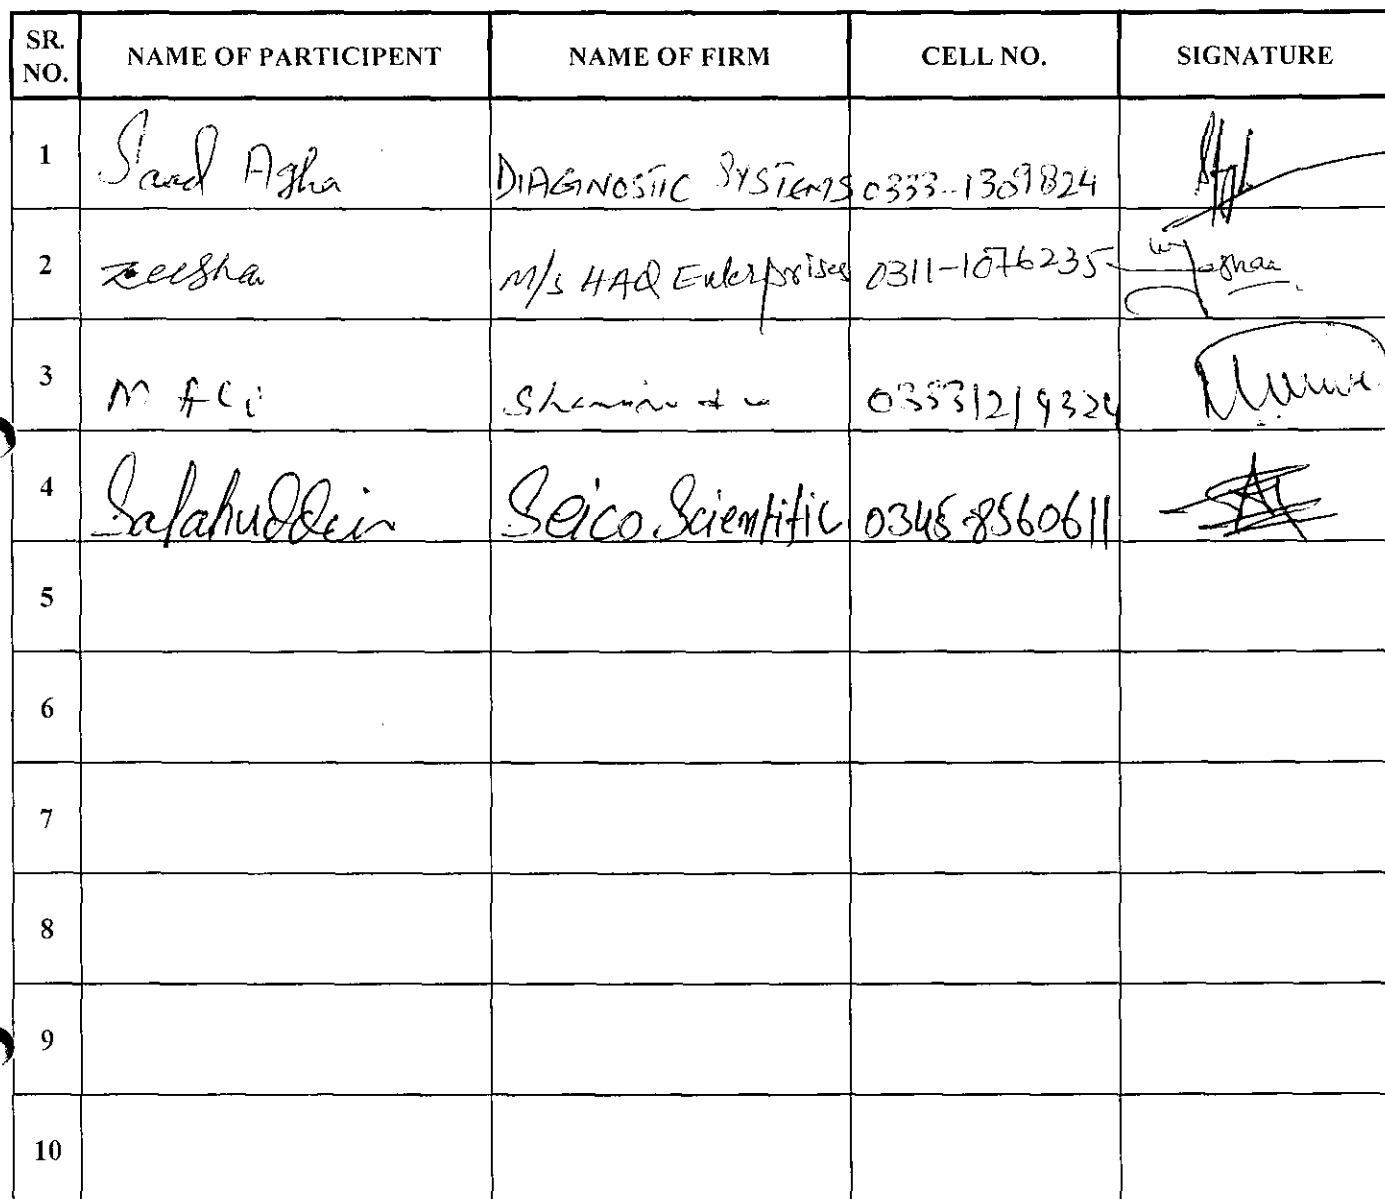 SR. NO. NAME OF PARTICIPENT NAME OF FIRM CELL NO. SIGNATURE
1 Saad Agha DIAGNOSTIC SYSTEMS 0333-1309824
2 Zeesha M/s HAQ Enterprises 0311-1076235
3 M Ali 03331219324
4 Salahuddin Seico Scientific 0345-8560611
5
6
7
8
9
10